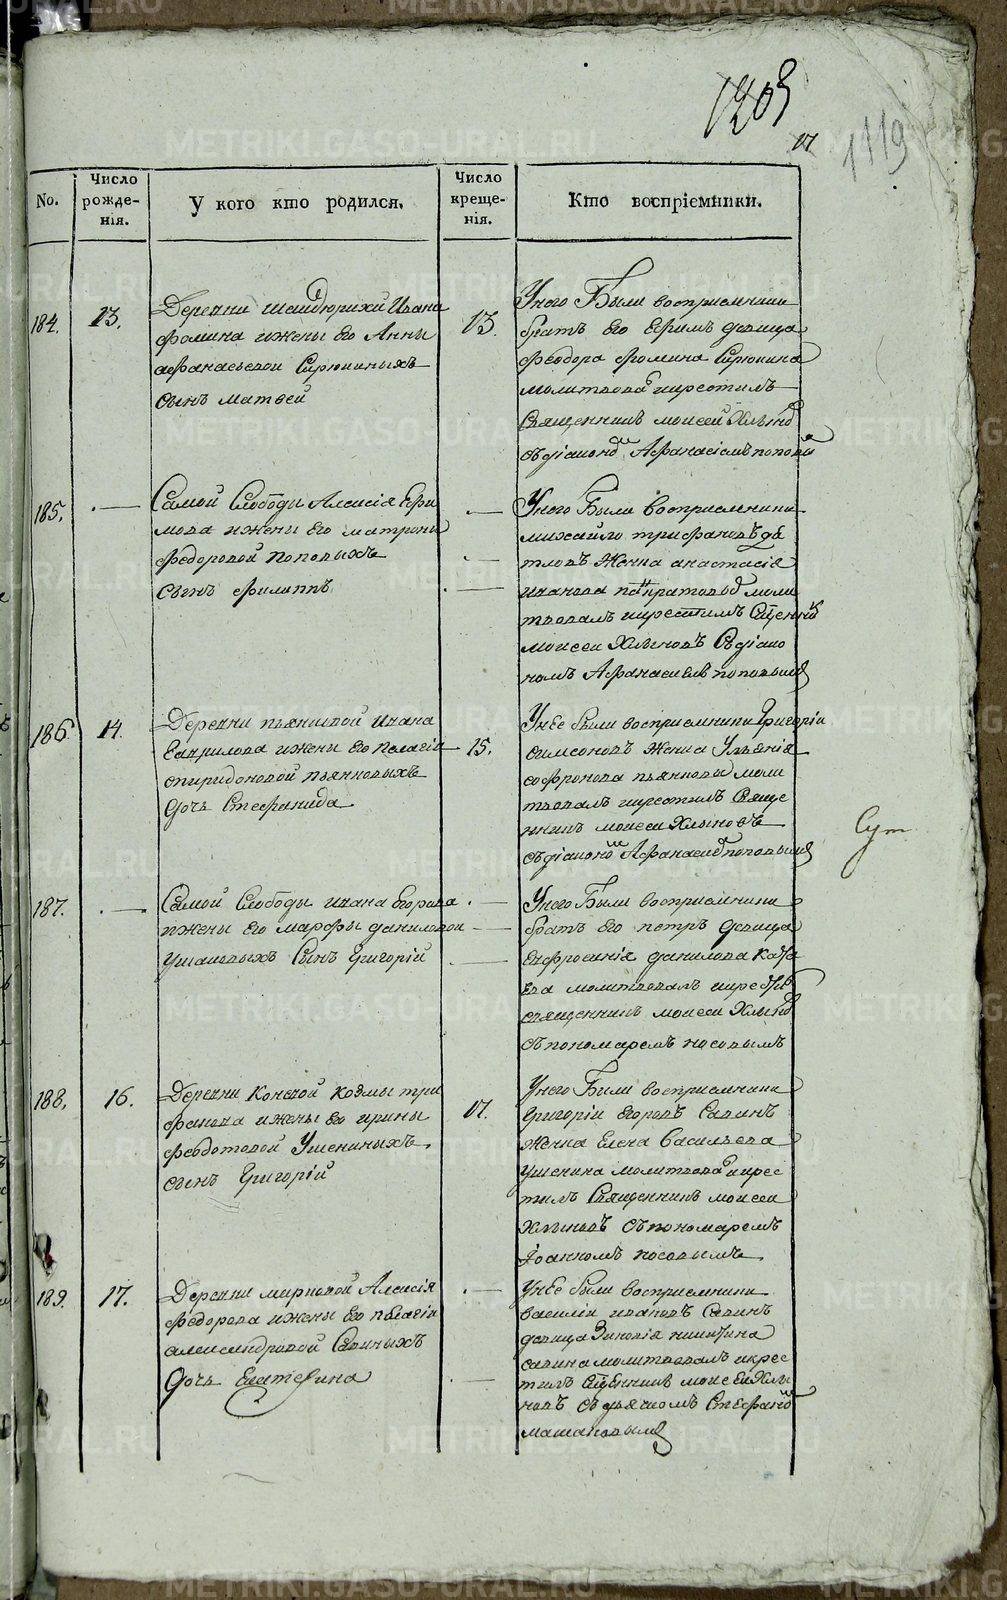 1203
17
1119
No.
Число рожде-нія.
У кого кто родился.
Число креще-нія.
Кто воспріемники.
184.
13.
Деревни Шайдюрихи Ивана
Фомина ижены Его Анны
Афанасьевой Сирюкиныхъ
сынъ Матвей
13.
Унего Были восприемники
братъ Его Ефимъ девица
Феодора Фомина Сирюкина
молитвова икрестилъ
Священникъ моисей Хлынов
съдіакономъ Афанасіемъ поповым
185.
Самой Слободы Алексія Ефи
мова ижены Его матроны
Федоровой Поповыхъ
сынъ Филиппъ
Унего Были восприемники
михайло трифановъ
женка анастасія
иванова моли
твовалъ икрестилъ Сщенникъ
моисеи Хлыновъ Съдіако
номъ Афанасиемъ поповымъ
186.
14.
Деревни пьянковой Ивана
Гаврилова ижены Его Пелагіи
спиридоновой пьянковыхъ
дочь Стефанида
15.
Унее были восприемники Григоріи
симеоновъ женка Ульянія
софронова пьянковы моли
твовалъ икрестилъ Свяще
нникъ моисеи Хлыновъ
съдіакономъ Афанасиемъ поповымъ
Сут
187.
Самой Слободы ивана Егорова
ижены Его марфы даниловой
Ушаковыхъ Сынъ Григорій
Унего Были восприемники
братъ Его петръ девица
Евфросинія данилова
молитвовалъ икрестил
священникъ моисеи Хлынов
съпономаремъ носовымъ
188.
16.
Деревни Конской Козмы три
фанова ижены Его ирины
Федотовой Ушениныхъ
сынъ Григорій
17.
Унего Были восприемники
Григоріи Егоровъ Савинъ
женка Елена Васильева
Ушенина молитвова икрес
тилъ Священникъ моисеи
Хлыновъ съпономаремъ
Іоанномъ носовымъ
189.
17.
Деревни мирновой Алексія
Федорова ижены Его пелагіи
александровой Савиныхъ
Дочь Екатерина
Унее были восприемники
василіи ивановъ Савинъ
девица Зиновія никитина
савина молитвовалъ икрес
тилъ Сщенникъ моисеи Хлы
новъ съдьячкомъ Стефаном